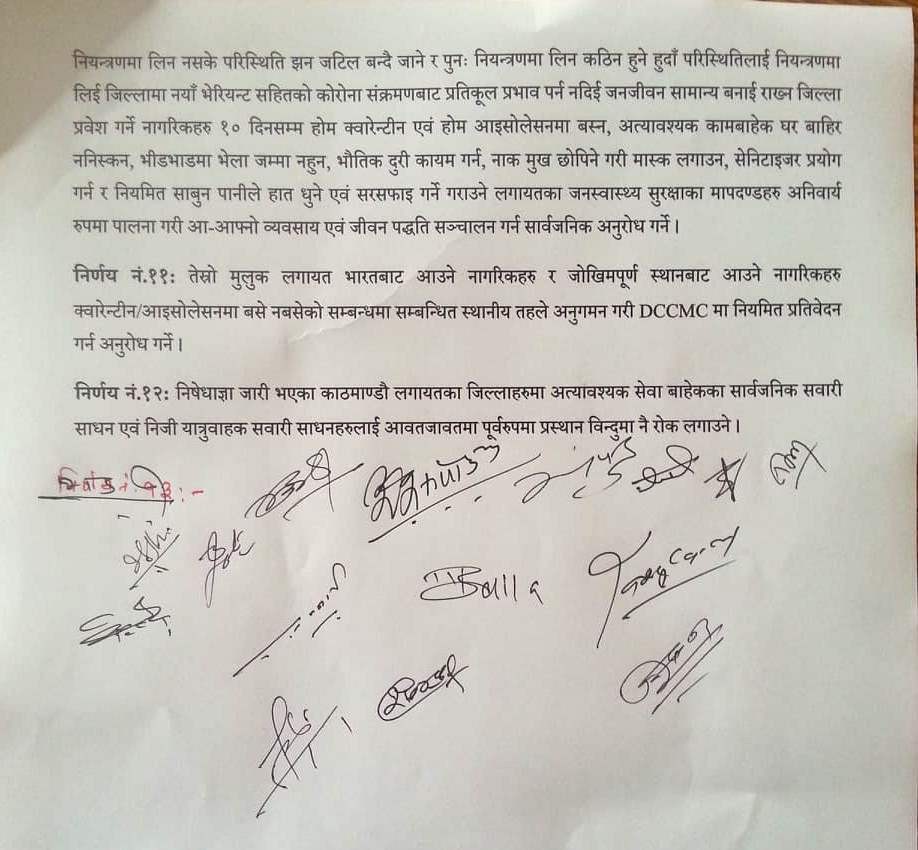 नियन्त्रणमा लिन नसके परिस्थिति झन जटिल बन्दै जाने र पुनः नियन्त्रणमा लिन कठिन हुने हुदाँ परिस्थितिलाई नियन्त्रणमा
लिई जिल्लामा नयाँ भेरियन्ट सहितको कोरोना संक्रमणबाट प्रतिकूल प्रभाव पर्न नदिई जनजीवन सामान्य बनाई राख्न जिल्ला
प्रवेश गर्ने नागरिकहरु १० दिनसम्म होम क्वारेन्टीन एवं होम आइसोलेसनमा बस्न, अत्यावश्यक कामबाहेक घर बाहिर
ननिस्कन, भीडभाडमा भेला जम्मा नहुन, भौतिक दुरी कायम गर्न, नाक मुख छोपिने गरी मास्क लगाउन, सेनिटाइजर प्रयोग
गर्न र नियमित साबुन पानीले हात धुने एवं सरसफाइ गर्ने गराउने लगायतका जनस्वास्थ्य सुरक्षाका मापदण्डहरु अनिवार्य
रुपमा पालना गरी आ-आफ्नो व्यवसाय एवं जीवन पद्धति सञ्चालन गर्न सार्वजनिक अनुरोध गर्ने ।
निर्णय नं.११: तेस्रो मुलुक लगायत भारतबाट आउने नागरिकहरु र जोखिमपूर्ण स्थानबाट आउने नागरिकहरु
क्वारेन्टीन/आइसोलेसनमा बसे नबसेको सम्बन्धमा सम्बन्धित स्थानीय तहले अनुगमन गरी DCCMC मा नियमित प्रतिवेदन
गर्न अनुरोध गर्ने ।
निर्णय नं.१२: निषेधाज्ञा जारी भएका काठमाण्डौ लगायतका जिल्लाहरुमा अत्यावश्यक सेवा बाहेकका सार्वजनिक सवारी
साधन एवं निजी यात्रुवाहक सवारी साधनहरुलाई आवतजावतमा पूर्वरुपमा प्रस्थान विन्दुमा नै रोक लगाउने ।